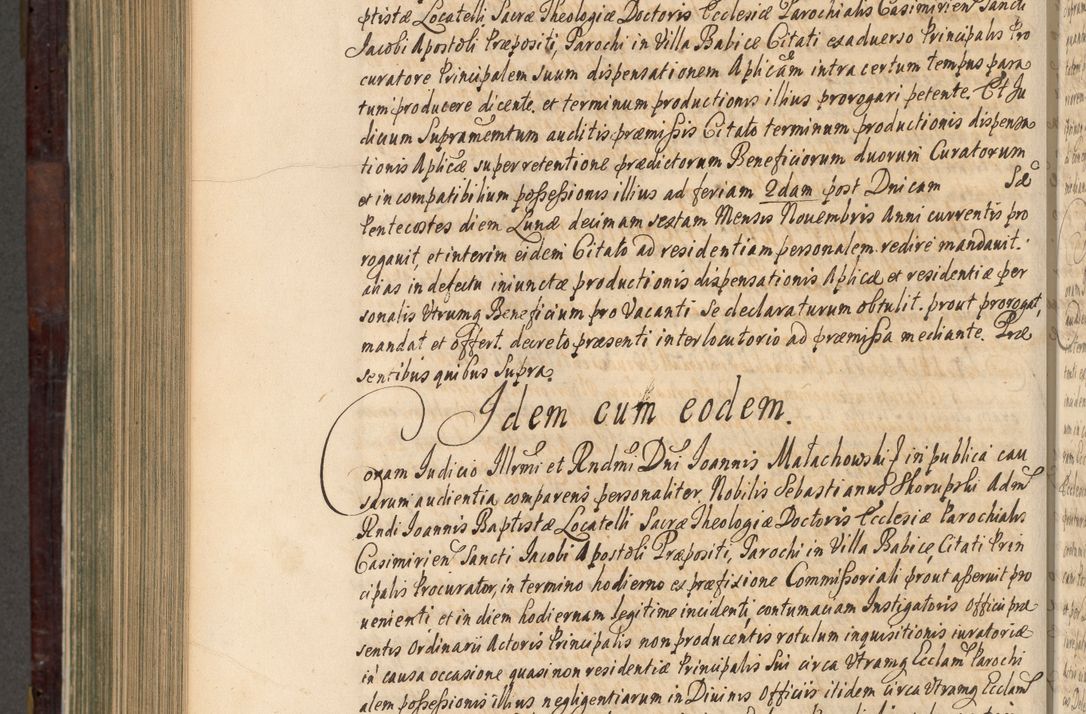 ptistæ Locatelli Sacræ Theologiæ Doctoris Ecclesiæ Parochialis Casimirien Sancti
Jacobi Apostoli Præpositi, Parochi in Villa Babice Citati exaduerso Principalis Pro
curatore Principalem suum dispensationem Aplicam intra certum tempus para
tum producere dicente, et terminum productionis illius prorogari petente. Et Ju
dicium Supramemtum auditis præmissis Citato terminum productionis dispensa
tionis Aplicæ super retentione prædictorum Beneficiorum duorum Curatorum
et incompatibilium possessionis illius ad feriam 2dam post Dnicam Sæ
Pentecostes diem Lunæ decimam sextam Mensis Nouembris Anni currentis pro
rogauit, et interim eidem Citato ad residentiam personalem redire mandauit.
alias in defectu iniunctæ productionis dispensationis Aplicæ et residentiæ per
sonalis Vtrumq Beneficium pro Vacanti se declaraturum obtulit. prout prorogat,
mandat et offert. decreto præsenti interlocutorio ad præmissa mediante. Præ
sentibus quibus supra.
Idem cum eodem.
Coram Judicio Illrmi et Rndmi Dni Joannis Małachowski in publica cau
sarum audientia comparens personaliter Nobilis Sebastianus Skorupski Adm
Rndi Joannis Baptistæ Locatelli Sacræ Theologiæ Doctoris Ecclesiæ Parochialis
Casimirien Sancti Jacobi Apostoli Præpositi, Parochi in Villa Babice Citati Prin
cipalis Procurator, in termino hodierno ex præfixione Commissoriali prout asseruit pro
uenienti, et in diem hodiernam legitime incidenti, contumaciam Instigatoris Officii præ
sentis Ordinarii Actoris Principalis non producentis rotulum inquisitionis iuratoriæ
in causa occasione quasi non residentiæ Principalis Sui circa Vtramq Ecclam Parochi
alem possessionis illius negligentiarum in Diuinis Officiis itidem circa Vtramq Ecclam